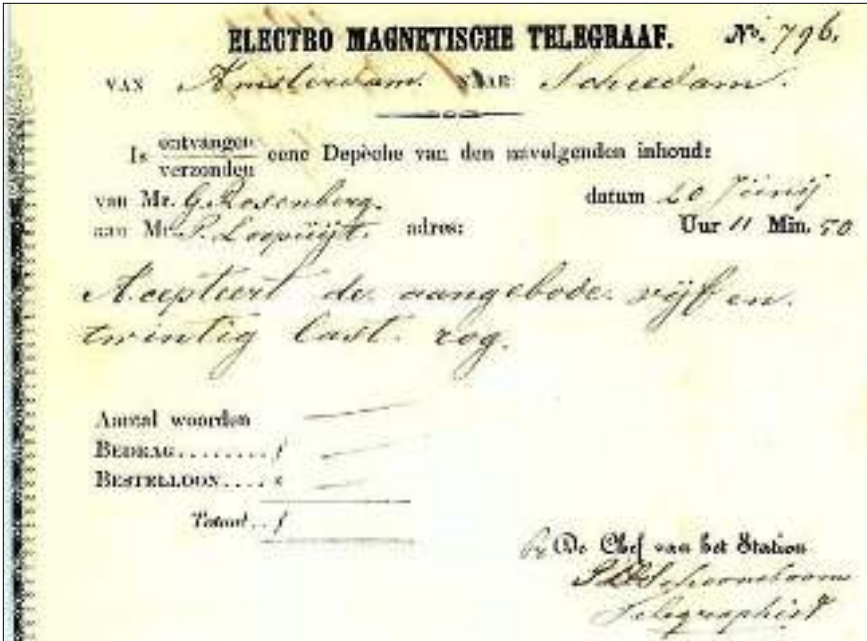 ELECTRO MAGNETISCHE TELEGRAAF. No. 796.
VAN Amsterdam. NAAR Schiedam.
Is ontvangen
verzonden eene Depêche van den navolgenden inhoud:
van Mr. G. Rosenberg. datum 20 Junij
aan Mr. P. Loopuijt. adres: Uur 11 Min. 50
Acepteert de aangebode vijf en
twintig last rog.
Aantal woorden
BEDRAG........ f
BESTELLOON.... "
Totaal.. f
De Chef van het Station
Telegraphist